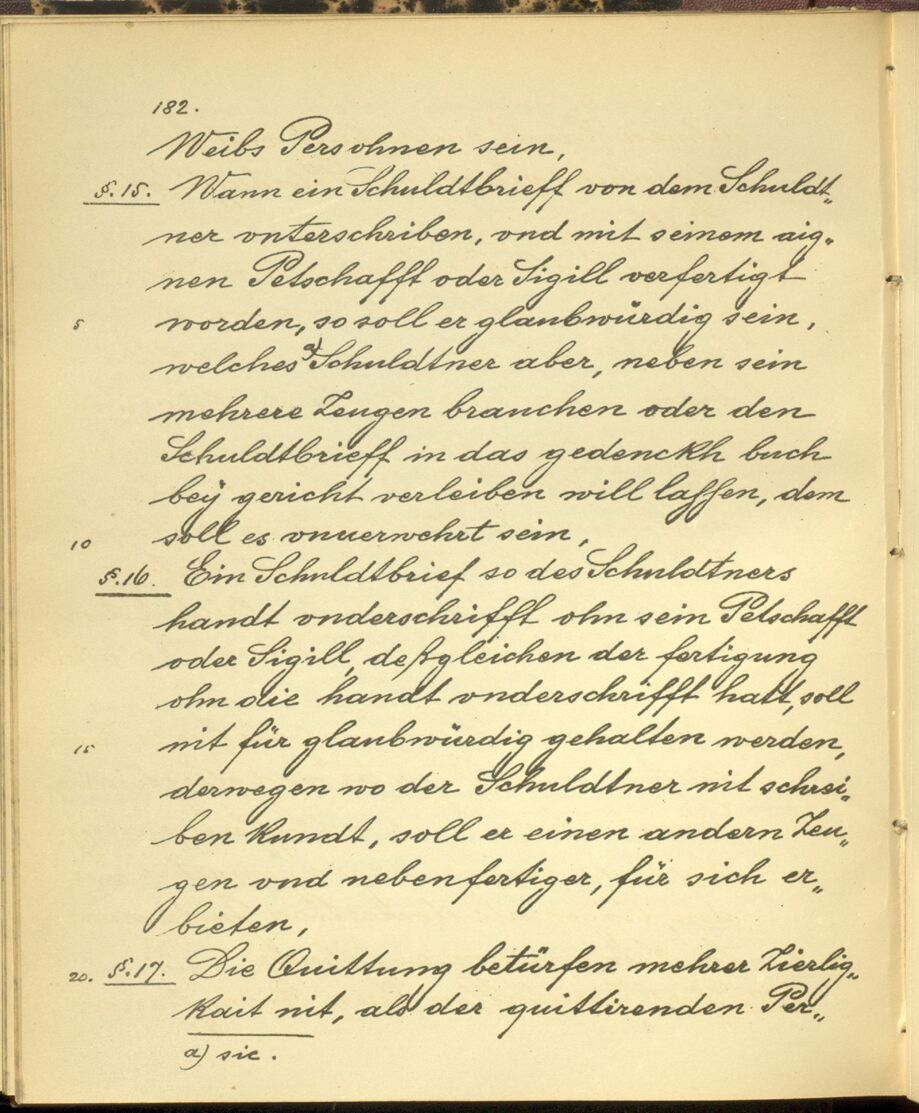 182.
Weibs Persohnen sein,
§.15. Wann ein Schuldtbrieff von dem Schuldt„
ner vnterschriben, vnd mit seinem aig„
nen Petschafft oder Sigill verfertigt
5 worden, so soll er glaubwürdig sein,
welches a) Schuldtner aber, neben sein
mehrere Zeugen brauchen oder den
Schuldtbrieff in das gedenckh buch
beÿ gericht verleiben will lassen, dem
10 soll es vnuerwehrt sein,
§.16. Ein Schuldtbrief so des Schuldtners
handt vnderschrifft ohn sein Petschafft
oder Sigill, deßgleichen der fertigung
ohn die handt vnderschrifft hatt, soll
15 nit für glaubwürdig gehalten werden,
derwegen wo der Schuldtner nit schrei„
ben kundt, soll er einen andern Zeu„
gen vnd nebenfertiger, für sich er„
bieten,
20. §.17. Die Quittung betürfen mehrer Zierlig„
kait nit, als der quittirenden Per„
a) sic.